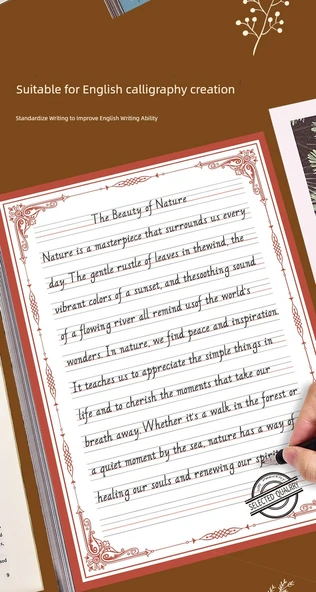 Suitable for English calligraphy creation
Standardize Writing to Improve English Writing Ability
The Beauty of Nature
Nature is a masterpiece that surrounds us every
day. The gentle rustle of leaves in thewind, the
vibrant colors of a sunset, and thesoothing sound
of a flowing river all remind usof the world's
wonders. In nature, we find peace and inspiration.
It teaches us to appreciate the simple things in
life and to cherish the moments that take our
breath away. Whether it's a walk in the forest or
a quiet moment by the sea, nature has a way of
healing our souls and renewing our spirits
SELECTED QUALITY
9